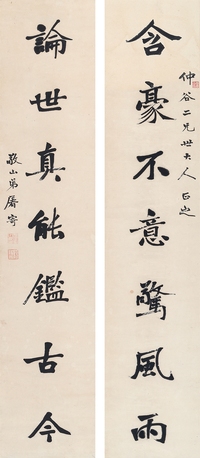 仲谷二兄世大人正之
含豪不意驚風雨
論世真能鑑古今
敬山弟屠寄